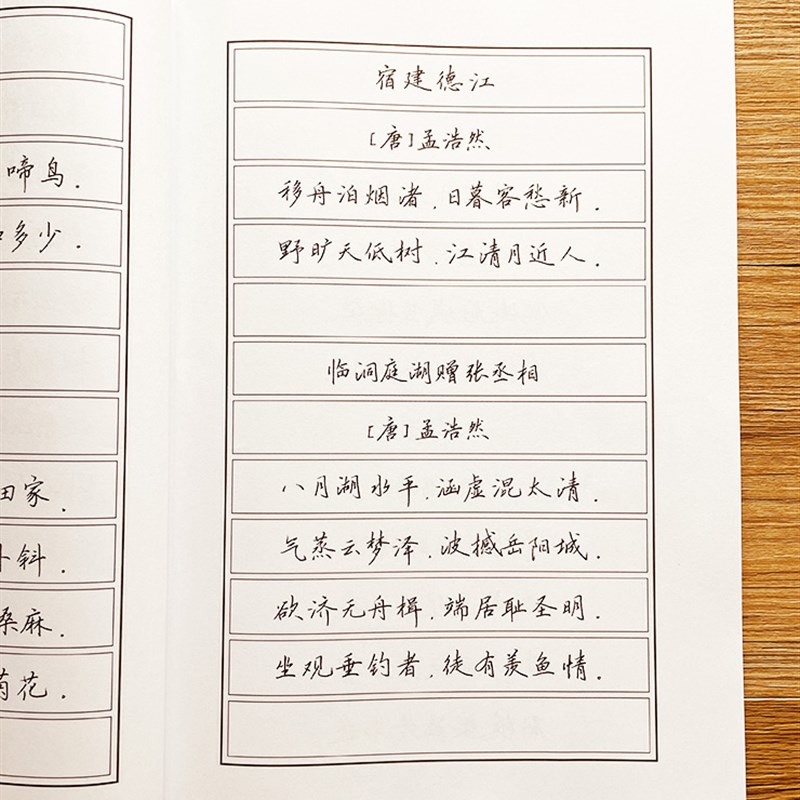 啼鸟.
多少.
田家.
斜.
桑麻.
菊花.
宿建德江
[唐]孟浩然
移舟泊烟渚,日暮客愁新.
野旷天低树,江清月近人.
临洞庭湖赠张丞相
[唐]孟浩然
八月湖水平,涵虚混太清.
气蒸云梦泽,波撼岳阳城.
欲济无舟楫,端居耻圣明.
坐观垂钓者,徒有羡鱼情.